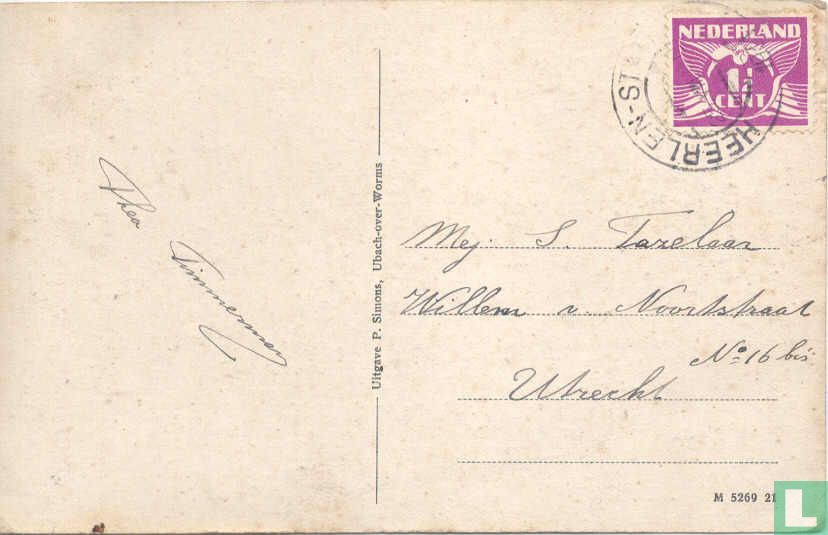 NEDERLAND
1½
CENT
HEERLEN-ST
Thea Timmerman
Uitgave P. Simons, Ubach-over-Worms
Mej: S. Tazelaar
Willem v. Noortstraat
No 16 bis
Utrecht
M 5269 21
L